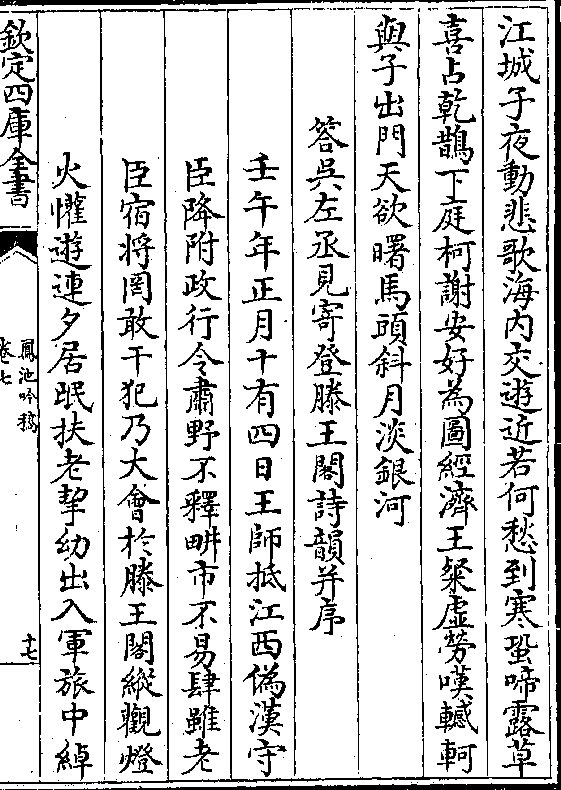 江城子夜動悲歌海内交遊近若何愁到寒蛩啼露草
喜占乾鵲下庭柯謝安好為圖經濟王粲虛勞嘆轗軻
與子出門天欲曙馬頭斜月淡銀河
答吳左丞見寄登滕王閣詩韻并序
壬午年正月十有四日王師抵江西偽漢守
臣降附政行令肅野不釋畊市不易肆雖老
臣宿將罔敢干犯乃大會於滕王閣縱觀燈
火懽遊連夕居氓扶老挈幼出入軍旅中綽
欽定四庫全書
鳳池吟稿
卷七
十七